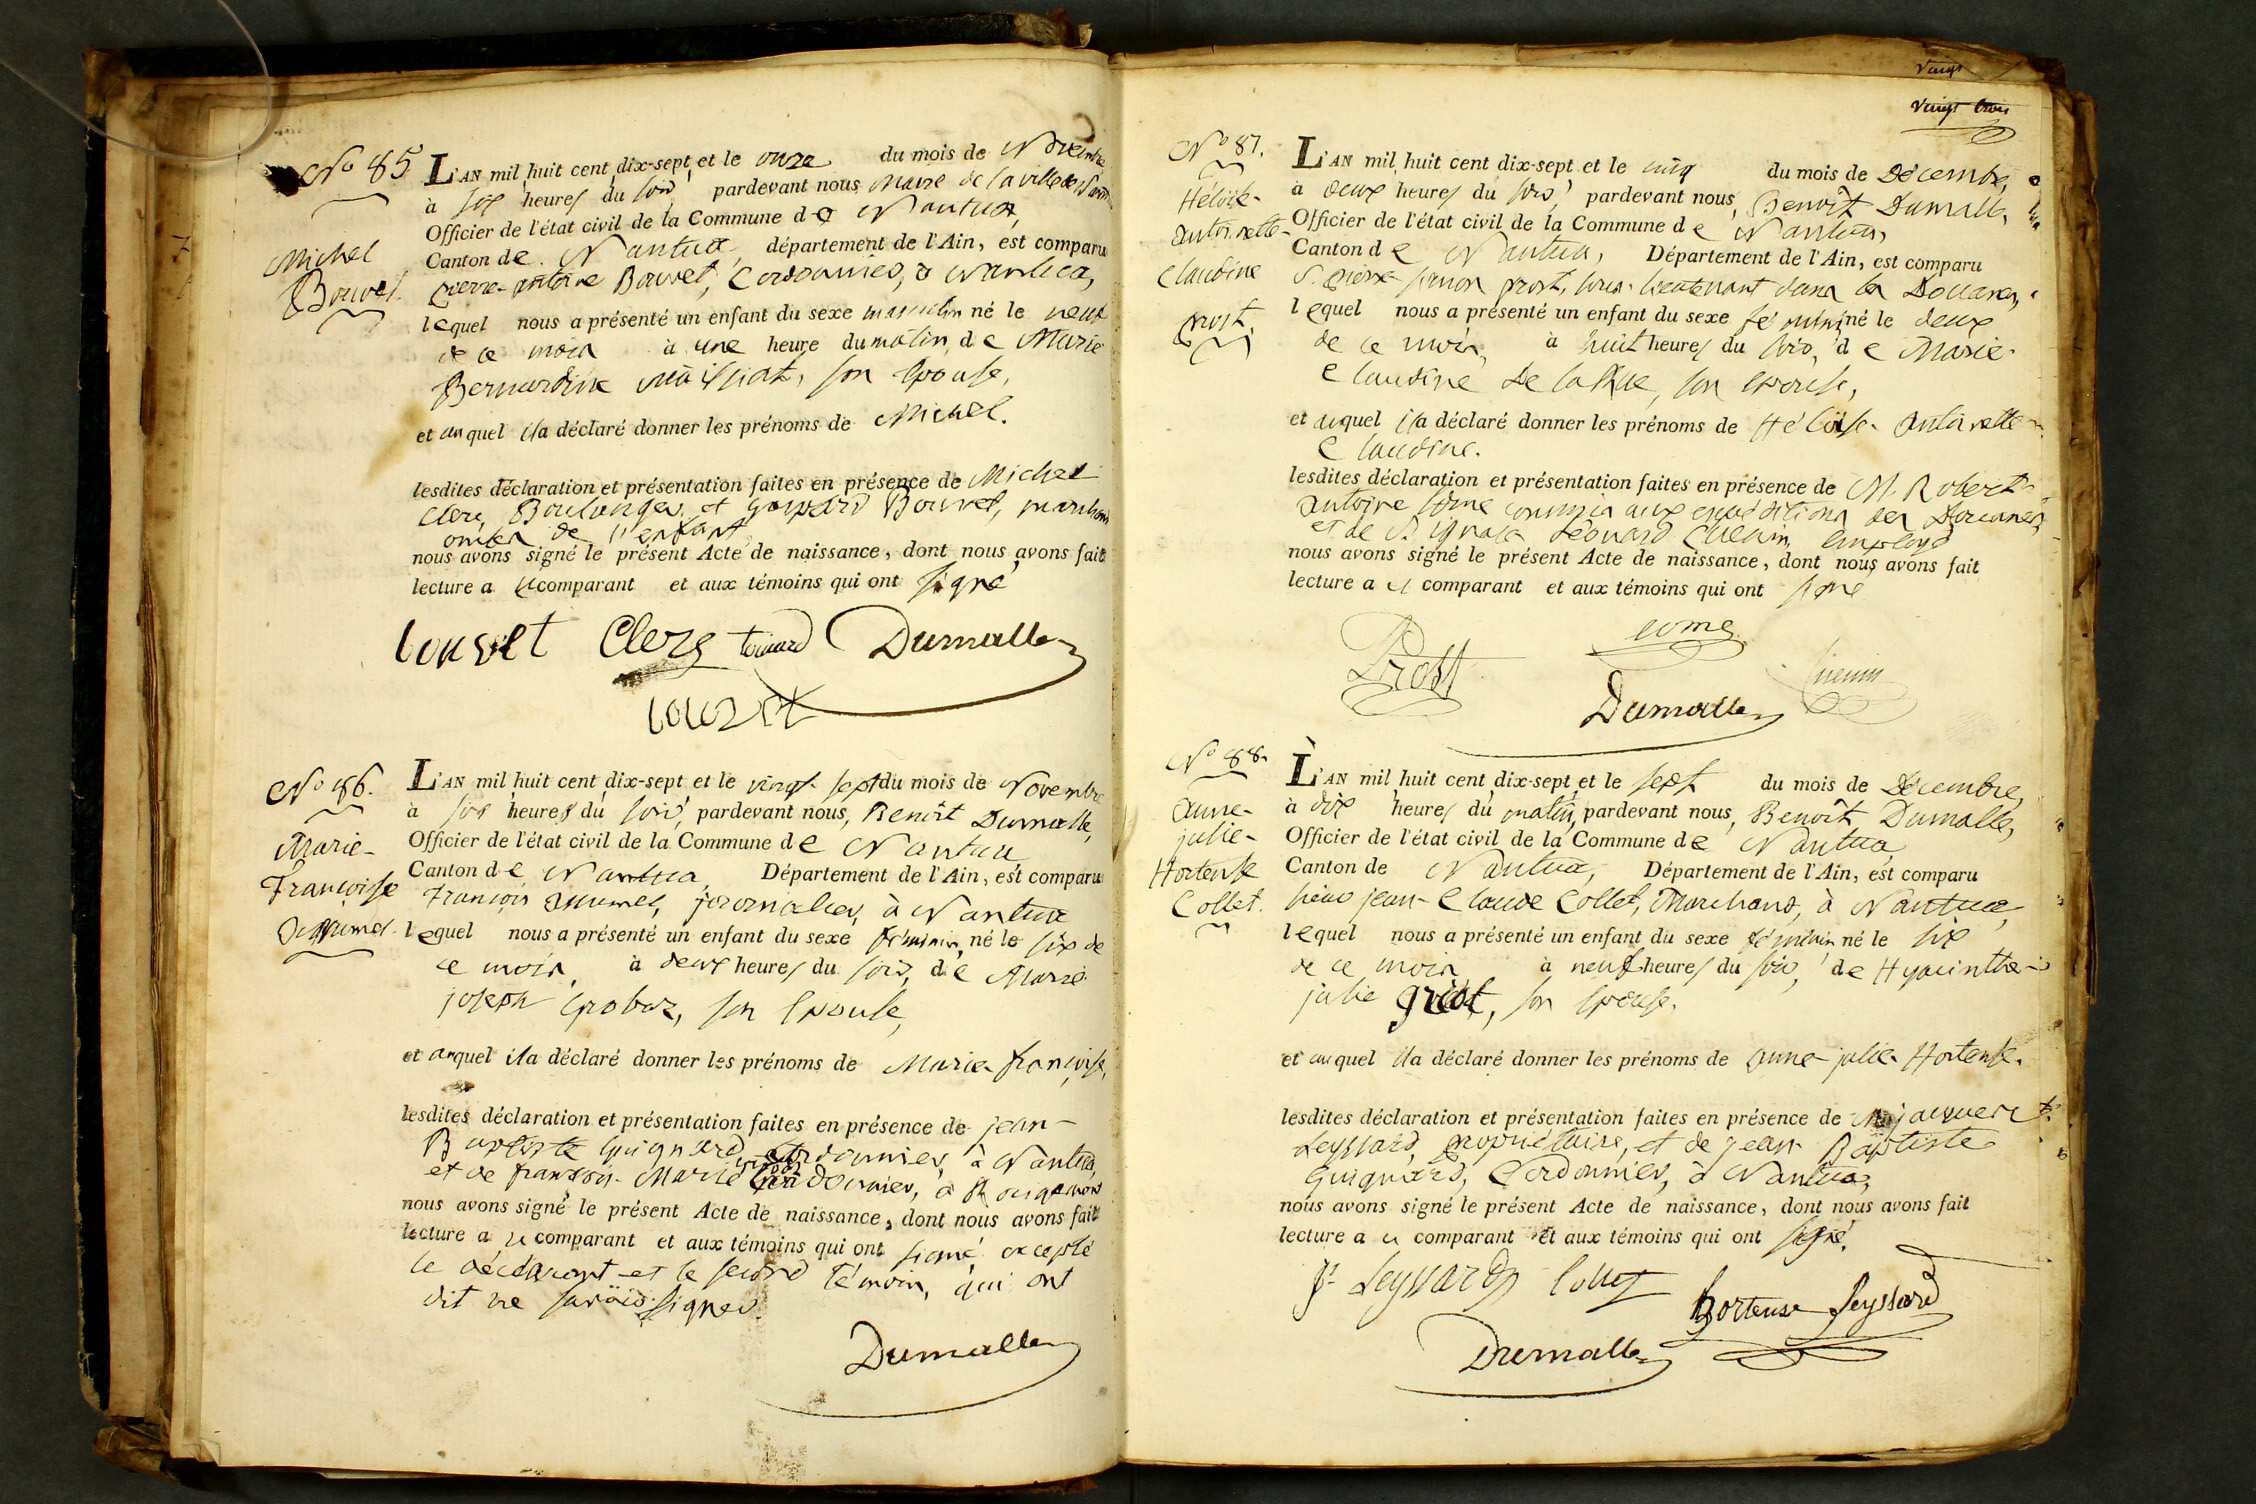 No 85
Michel
Bouvet.
L'AN mil huit cent dix-sept et le onze du mois de Novembre
à six heures du soir, pardevant nous Maire de la ville de Nantua
Officier de l'état civil de la Commune de Nantua,
Canton de Nantua, département de l'Ain, est comparu
pierre-antoine Bouvet, Cordonnier, à Nantua,
lequel nous a présenté un enfant du sexe masculin né le neuf
de ce mois à une heure du matin, de Marie
Bernardine Maissiat, son Epouse,
et auquel il a déclaré donner les prénoms de Michel.
lesdites déclaration et présentation faites en présence de Michel
Clerc, Boulanger, et gaspard Bouvet, marchand
oncles de l'enfant
nous avons signé le présent Acte de naissance, dont nous avons fait
lecture a ce comparant et aux témoins qui ont signé
bouvet Clerc Dumalle
bouvet
No 86.
Marie-
Françoise
L'AN mil huit cent dix-sept et le vingt-sept du mois de Novembre
à six heures du soir, pardevant nous, Benoît Dumalle,
Officier de l'état civil de la Commune de Nantua
Canton de Nantua, Département de l'Ain, est comparu
François journalier, à Nantua
lequel nous a présenté un enfant du sexe féminin, né le six de
ce mois, à deux heures du soir, de Marie
joseph grobaz, son Epouse,
et auquel il a déclaré donner les prénoms de Marie-françoise,
lesdites déclaration et présentation faites en présence de jean-
Baptiste guignard, Cordonnier, à Nantua,
et de françois-Marie Cordonnier, à
nous avons signé le présent Acte de naissance, dont nous avons fait
lecture a ce comparant et aux témoins qui ont signé excepté
le déclarant et le second témoin, qui ont
dit ne savoir signer.
Dumalle
vingt
vingt trois
No 87.
Héloïse-
antoinette-
Claudine
prost.
L'AN mil huit cent dix-sept et le cinq du mois de Décembre,
à deux heures du soir, pardevant nous, Benoît Dumalle,
Officier de l'état civil de la Commune de Nantua,
Canton de Nantua, Département de l'Ain, est comparu
S. pierre-simon prost, sous-lieutenant dans les Douanes,
lequel nous a présenté un enfant du sexe féminin né le deux
de ce mois, à huit heures du soir, de Marie-
Claudine De la Rue, son Epouse,
et auquel il a déclaré donner les prénoms de Héloïse-antoinette-
Claudine.
lesdites déclaration et présentation faites en présence de M. Robert-
antoine Côme commis aux expéditions des Douanes,
et de S. ignace Léonard Cuenin, employé
nous avons signé le présent Acte de naissance, dont nous avons fait
lecture a ce comparant et aux témoins qui ont signé
come
Prost Cuenin
Dumalle
No 88.
anne-
julie-
Hortense
Collet.
L'AN mil huit cent dix-sept et le sept du mois de Décembre,
à dix heures du matin, pardevant nous, Benoît Dumalle,
Officier de l'état civil de la Commune de Nantua
Canton de Nantua, Département de l'Ain, est comparu
sieur jean-Claude Collet, Marchand, à Nantua,
lequel nous a présenté un enfant du sexe féminin né le six
de ce mois à neuf heures du soir, de Hyacinthe-
julie griot, son Epouse.
et auquel il a déclaré donner les prénoms de anne-julie-Hortense.
lesdites déclaration et présentation faites en présence de
Leyssard, propriétaire, et de jean Baptiste
guignard, Cordonnier, à Nantua,
nous avons signé le présent Acte de naissance, dont nous avons fait
lecture a ce comparant et aux témoins qui ont signé.
Leyssard Collet
hortense Leyssard
Dumalle